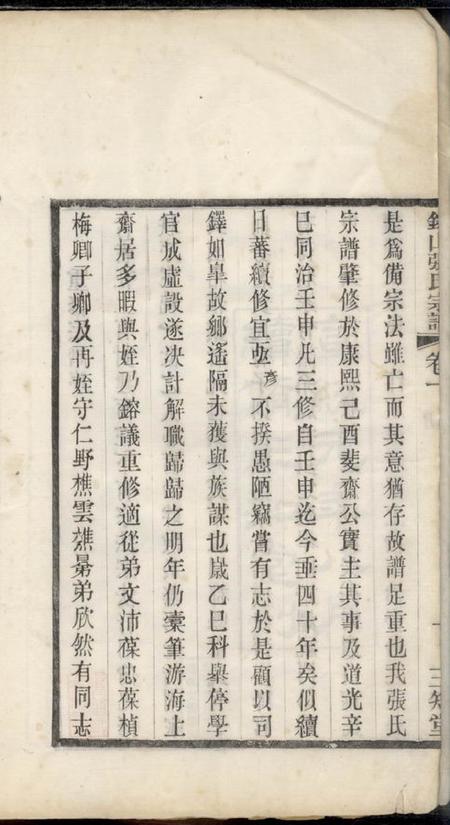 張氏宗譜 卷一 三知堂
是爲備宗法雖亡而其意猶存故譜足重也我張氏
宗譜肇修於康熙己酉斐齋公實主其事及道光辛
巳同治壬申凡三修自壬申迄今垂四十年矣似續
日蕃續修宜亟彥不揆愚陋竊嘗有志於是顧以司
鐸如臯故鄉遙隔未獲與族謀也歲乙巳科舉停學
官成虛設遂決計解職歸歸之明年仍橐筆游海上
齋居多暇與姪乃鎔議重修適從弟文沛葆忠葆楨
梅卿子卿及再姪守仁野樵雲樵暴弟欣然有同志